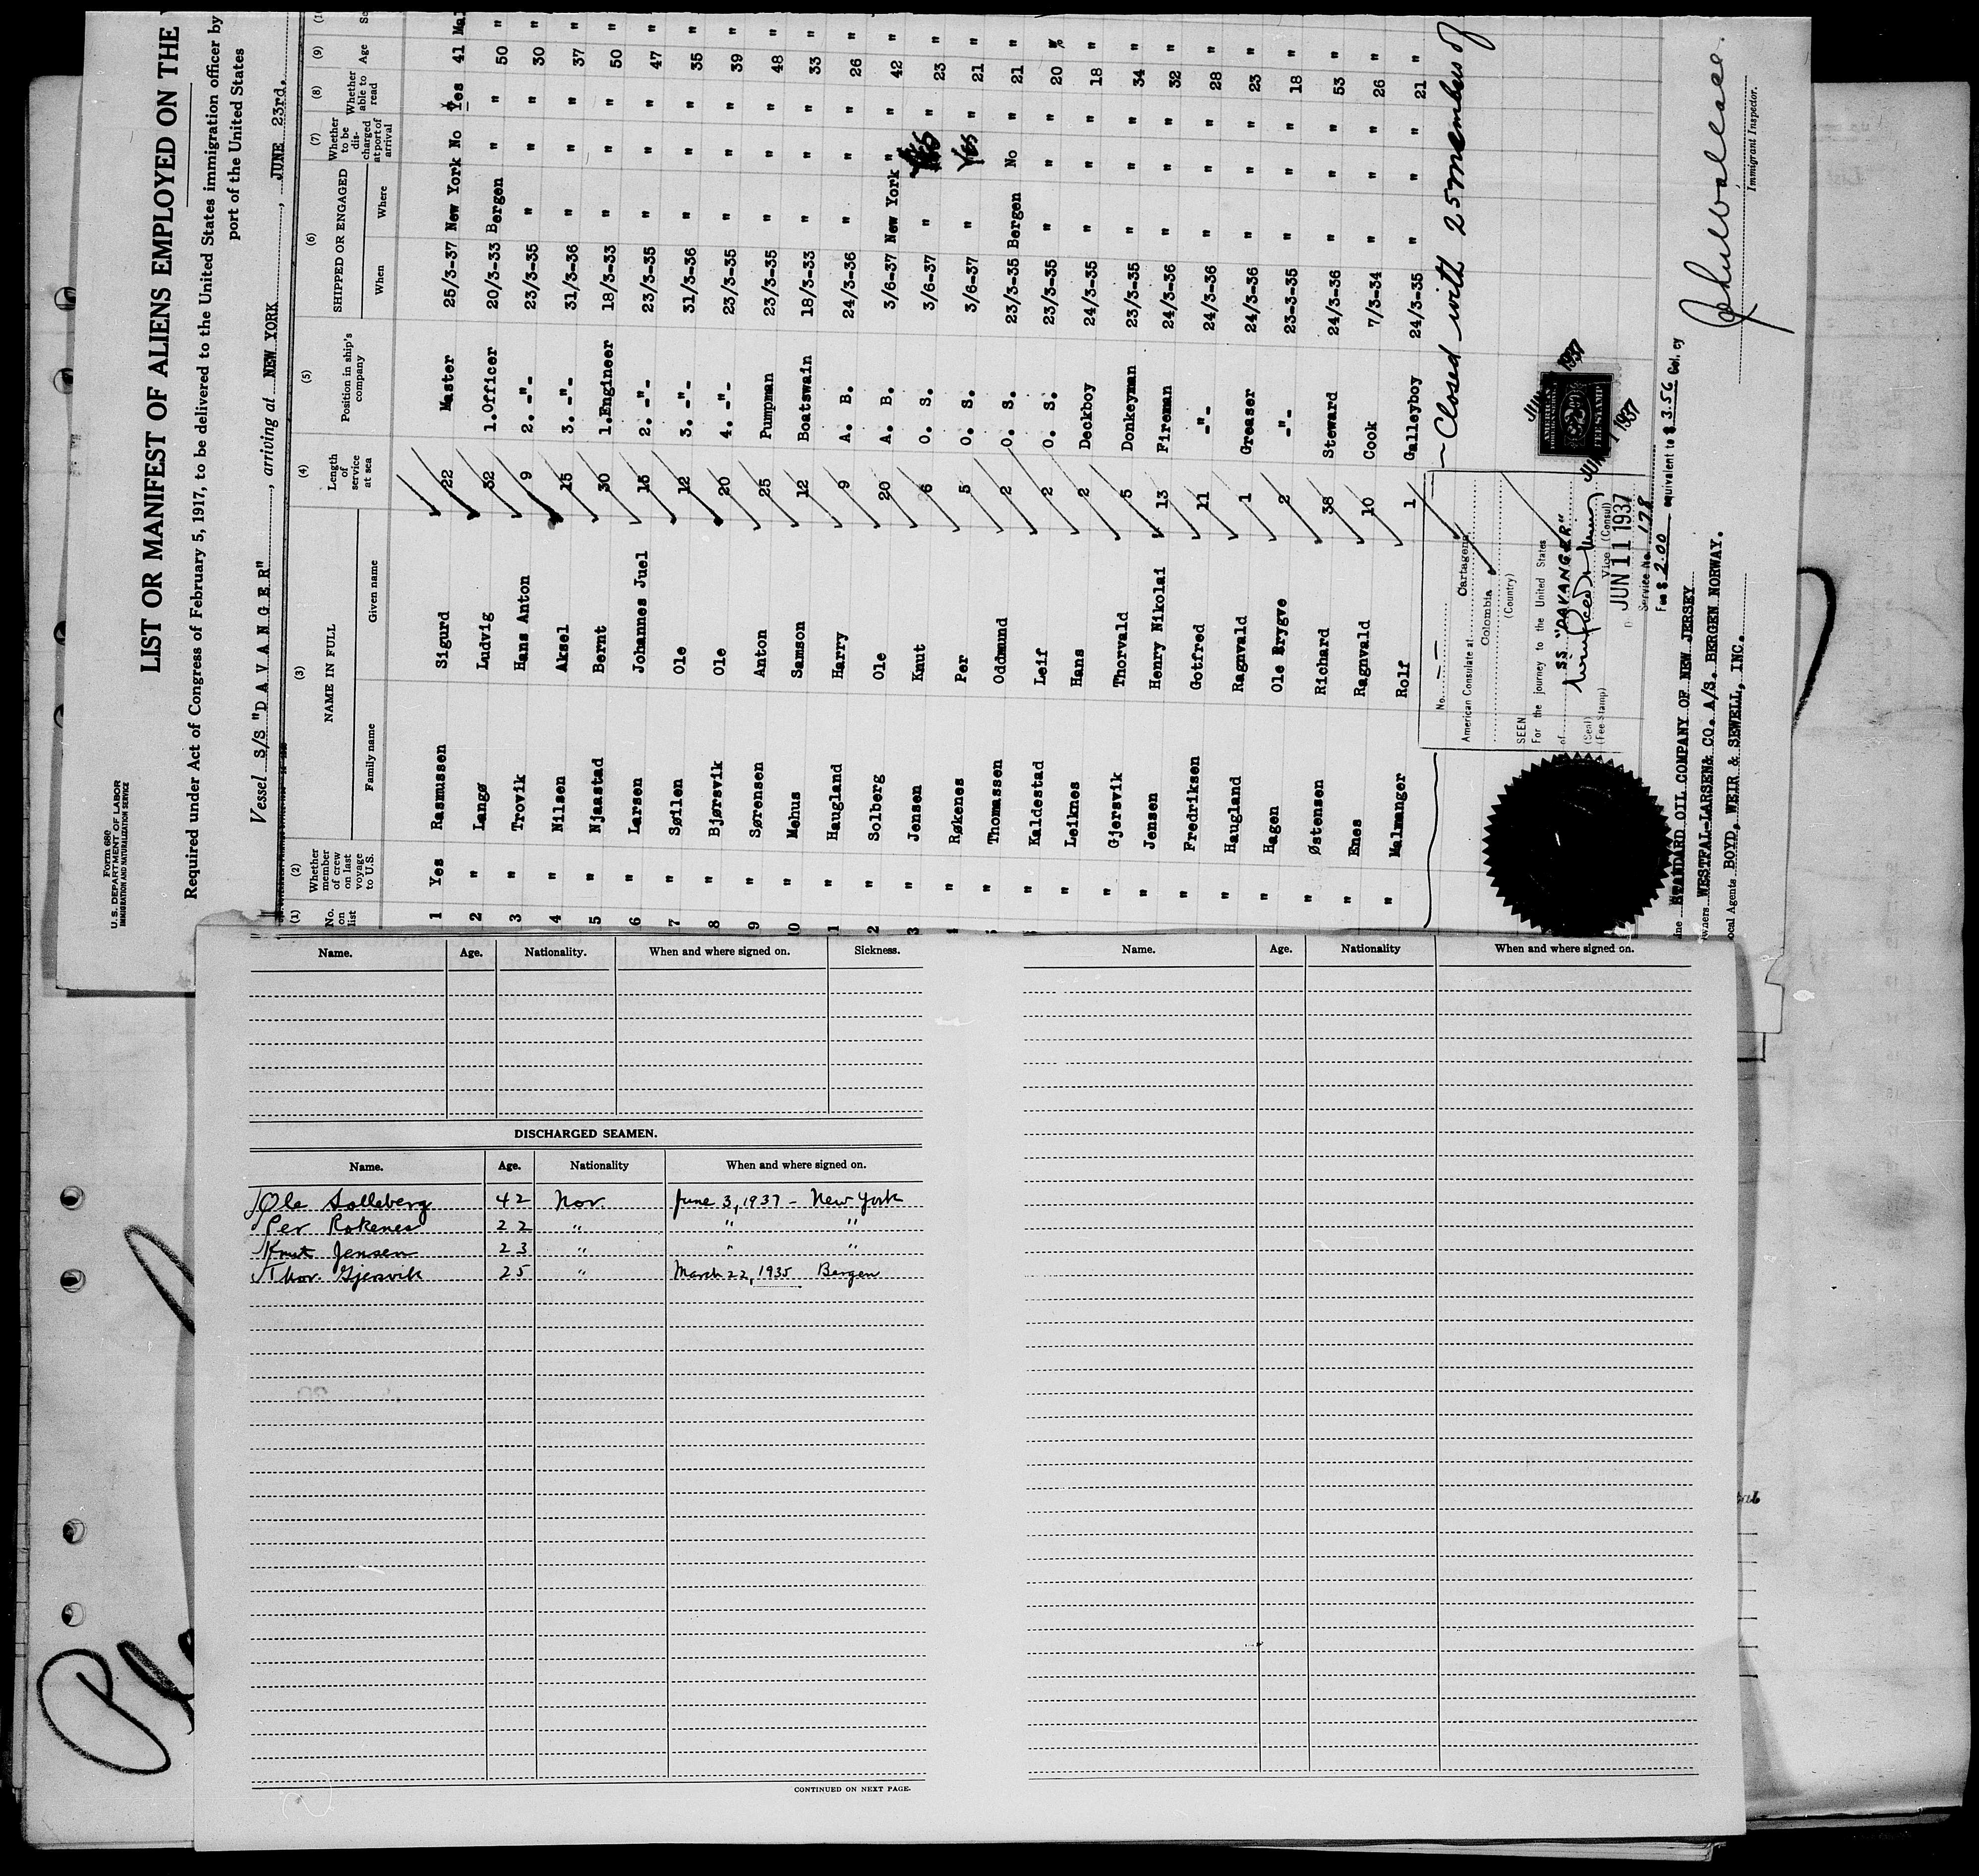 Form 680
U.S. DEPARTMENT OF LABOR
IMMIGRATION AND NATURALIZATION SERVICE
LIST OR MANIFEST OF ALIENS EMPLOYED ON THE
Required under Act of Congress of February 5, 1917, to be delivered to the United States immigration officer by
port of the United States
Vessel S/S "DAVANGER", arriving at NEW YORK, JUNE 23rd.
(1) No. on list (2) Whether member of crew on last voyage to U.S. (3) NAME IN FULL Family name Given name (4) Length of service at sea (5) Position in ship's company (6) SHIPPED OR ENGAGED When Where (7) Whether to be discharged at port of arrival (8) Whether able to read (9) Age
1 Yes Rasmussen Sigurd 22 Master 25/3-37 New York No Yes 41 Mal
2 " Langø Ludvig 32 1.Officer 20/3-33 Bergen " " 50 "
3 " Trovik Hans Anton 9 2. -"- 23/3-35 " " " 30 "
4 " Nilsen Aksel 15 3. -"- 31/3-36 " " " 37 "
5 " Njaastad Bernt 30 1.Engineer 18/3-33 " " " 50 "
6 " Larsen Johannes Juel 15 2. -"- 23/3-35 " " " 47 "
7 " Søilen Ole 12 3. -"- 31/3-36 " " " 35 "
8 " Bjørsvik Ole 20 4. -"- 23/3-35 " " " 39 "
9 " Sørensen Anton 25 Pumpman 23/3-35 " " " 48 "
10 " Mehus Samson 12 Boatswain 18/3-33 " " " 33 "
1 " Haugland Harry 9 A. B. 24/3-36 " " " 26 "
2 " Solberg Ole 20 A. B. 3/6-37 New York " " 42 "
3 " Jensen Knut 6 O. S. 3/6-37 " Yes " 23 "
" Røkenes Per 5 O. S. 3/6-37 " Yes " 21 "
" Thomassen Oddmund 2 O. S. 23/3-35 Bergen No " 21 "
" Kaldestad Leif 2 O. S. 23/3-35 " " " 20 "
" Leiknes Hans 2 Deckboy 24/3-35 " " " 18 "
" Gjersvik Thorvald 5 Donkeyman 23/3-35 " " " 34 "
" Jensen Henry Nikolai 13 Fireman 24/3-36 " " " 32 "
" Fredriksen Gotfred 11 -"- 24/3-36 " " " 28 "
" Haugland Ragnvald 1 Greaser 24/3-36 " " " 23 "
" Hagen Ole Brygve 2 -"- 23-3-35 " " " 18 "
" Østensen Richard 38 Steward 24/3-36 " " " 53 "
" Enes Ragnvald 10 Cook 7/3-34 " " " 26 "
" Malmanger Rolf 1 Galleyboy 24/3-35 " " " 21 "
Closed with 25 members of
No.
American Consulate at Cartagena
Colombia
(Country)
SEEN
For the journey to the United States
of SS "DAVANGER"
(Seal)
(Fee Stamp) Vice (Consul)
JUN 11 1937
Service No. 178
Fee $ 2.00 equivalent to $ 3.56 Col. cy
AMERICAN
FEE STAMP
1937
1937
STANDARD OIL COMPANY OF NEW JERSEY
wners WESTFAL-LARSEN& CO. A/S. BERGEN NORWAY.
ocal Agents BOYD, WEIR & SEWELL, INC.
Immigrant Inspector.
Name. Age. Nationality. When and where signed on. Sickness.
Name. Age. Nationality When and where signed on.
DISCHARGED SEAMEN.
Name. Age. Nationality When and where signed on.
Ole Solleberg 42 Nor. June 3, 1937 - New York
Per Rokenes 22 " " "
Knut Jensen 23 " " "
Thor. Gjersvik 25 " March 22, 1935 Bergen
CONTINUED ON NEXT PAGE.